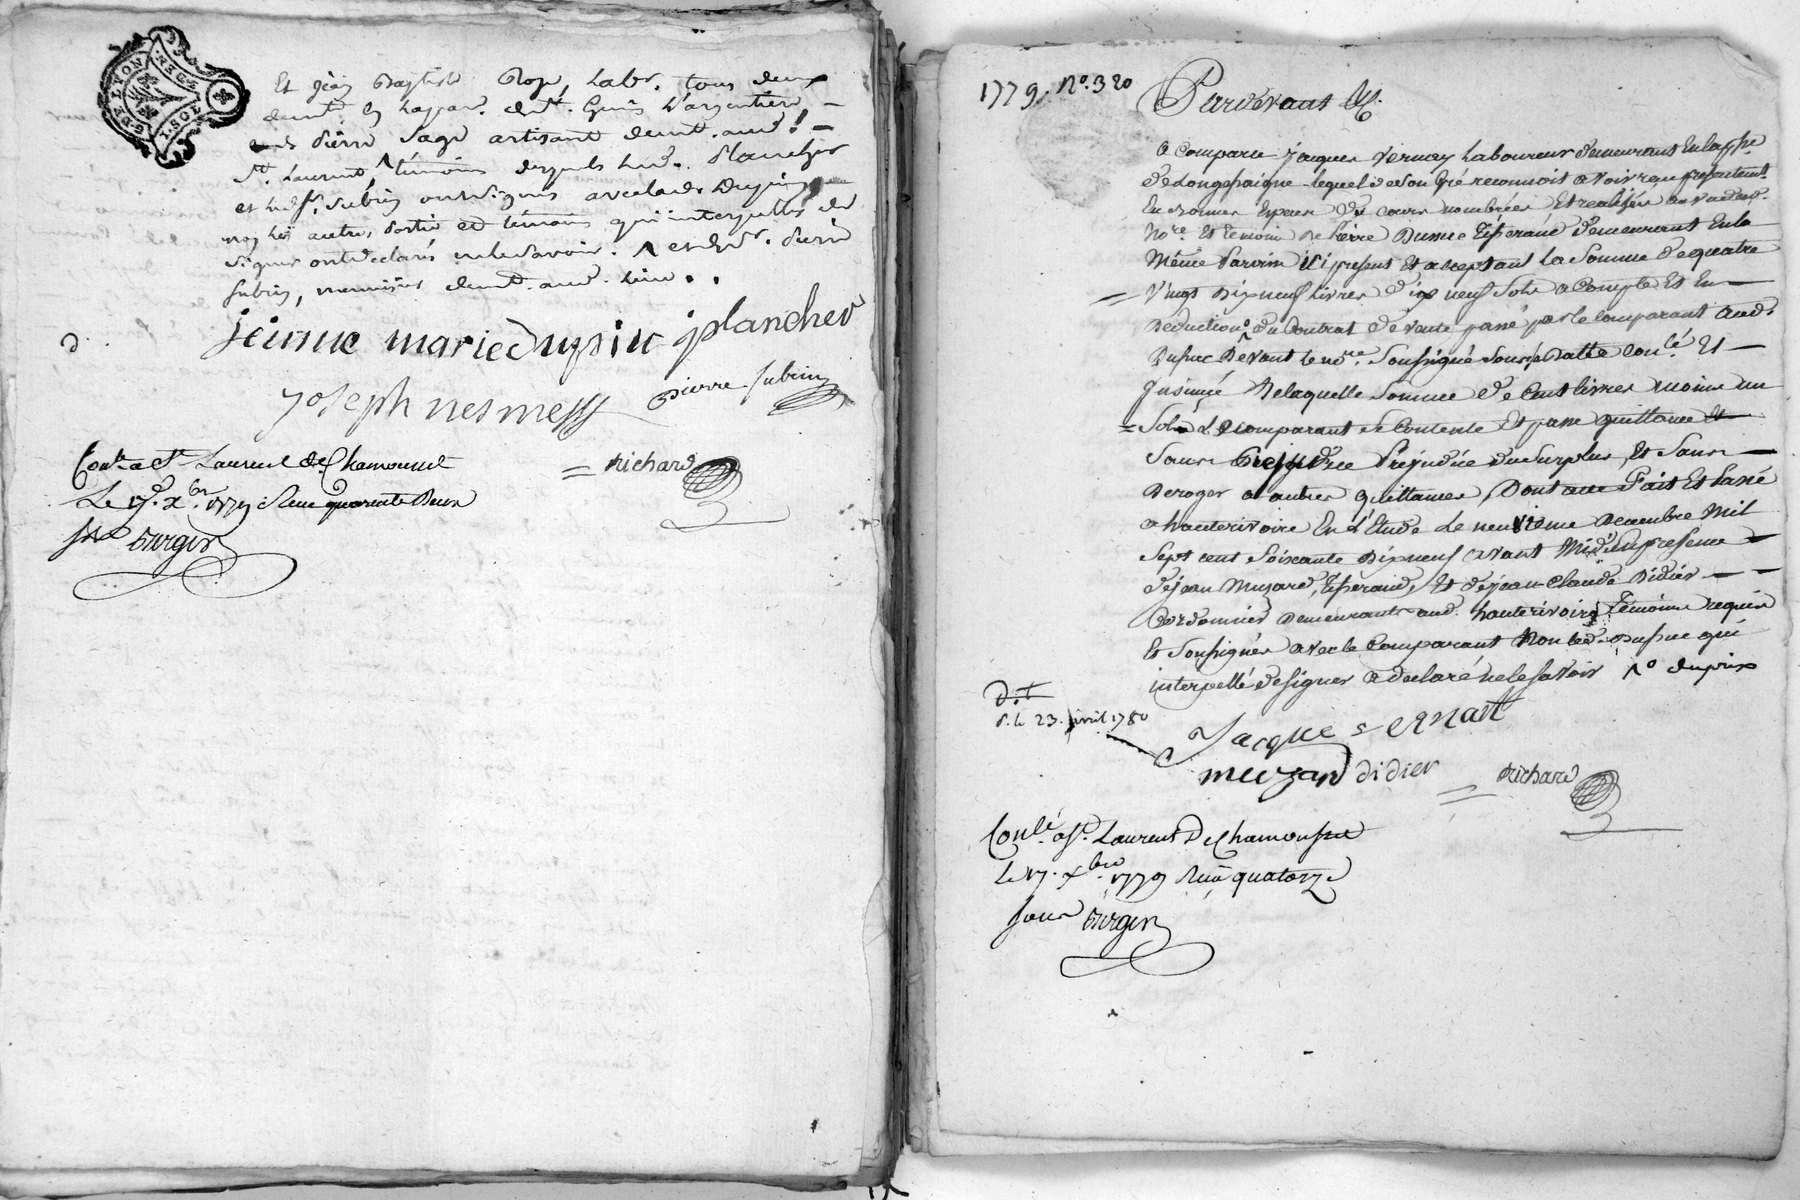 GEN. DE LYON
1. SOL
Et jean Baptiste labr. tous deux
demt. en la parr. de st. Genis L'argentiere
et de pierre Sage artisant demt. aud.
St. Laurent, témoins desquels led. Plancher
et led. Sr. Subrin ont signés avec lade. Dupin
non les autres parties et témoins qui interpellés de
signer ont declarés ne le savoir. et de Sr. pierre
Subrin, demt. aud. lieu.
d.
jeinne marie dupin jplancher
joseph nesmess pierre subrin
Conlé a St. Laurent de Chamousset
Le 17. xbre. 1779. Reçu quarante Deux
richard
1779. No. 320
Pardevant &c.
a Comparu jacques Vernay Laboureur demeurant En la psse.
de Longessaigne lequel de son Gré reconnoit avoir reçu presentemt.
En bonnes Especes du cours nombrées Et realisées au vu dud.
Nore. Et temoins de Pierre Dussuc Tisserand demeurant En la
même Parroisse ici present Et acceptant La Somme de quatre
Vingt Dix neuf livres dix neuf Sols a Compte Et En
Deduction du Contrat de vente passé par le Comparant aud.
Dussuc Devant le nore. Soussigné Sous sa Datte Conlé. Et
Insinué De laquelle Somme de Cent livres moins un
Sol Le Comparant se Contente Et passe quittance et
Sans Prejudice du Surplus, Et Sans
Deroger a autres quittances, Dont acte Fait Et Passé
a hauterivoire En L'Etude Le neuvieme Decembre Mil
Sept cent Soixante Dix neuf avant Midi En presence
de jean Muzard, Tisserand, Et de jean Claude Didier
Cordonnier Demeurants aud. hauterivoire Témoins requis
Et Soussignés avec le Comparant Non led. Dussuc qui
interpellé de signer a declaré ne le savoir du prix
d. T
d. le 23. avril 1780
Jacque vernait
muzard didier richard
Conlé. a St. Laurent De Chamousset
Le 17. xbre. 1779 Reçu quatorze
Sous